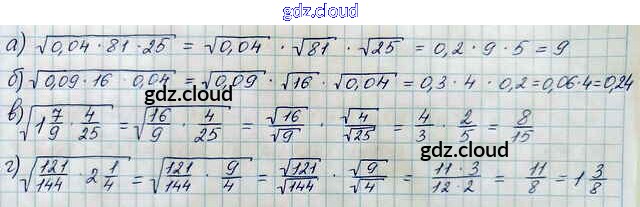 gdz.cloud
а) √(0,04 · 81 · 25) = √0,04 · √81 · √25 = 0,2 · 9 · 5 = 9
б) √(0,09 · 16 · 0,04) = √0,09 · √16 · √0,04 = 0,3 · 4 · 0,2 = 0,06 · 4 = 0,24
gdz.cloud
в) √(1 7/9 · 4/25) = √(16/9 · 4/25) = √16/√9 · √4/√25 = 4/3 · 2/5 = 8/15
gdz.cloud
г) √(121/144 · 2 1/4) = √(121/144 · 9/4) = √121/√144 · √9/√4 = 11 · 3/12 · 2 = 11/8 = 1 3/8